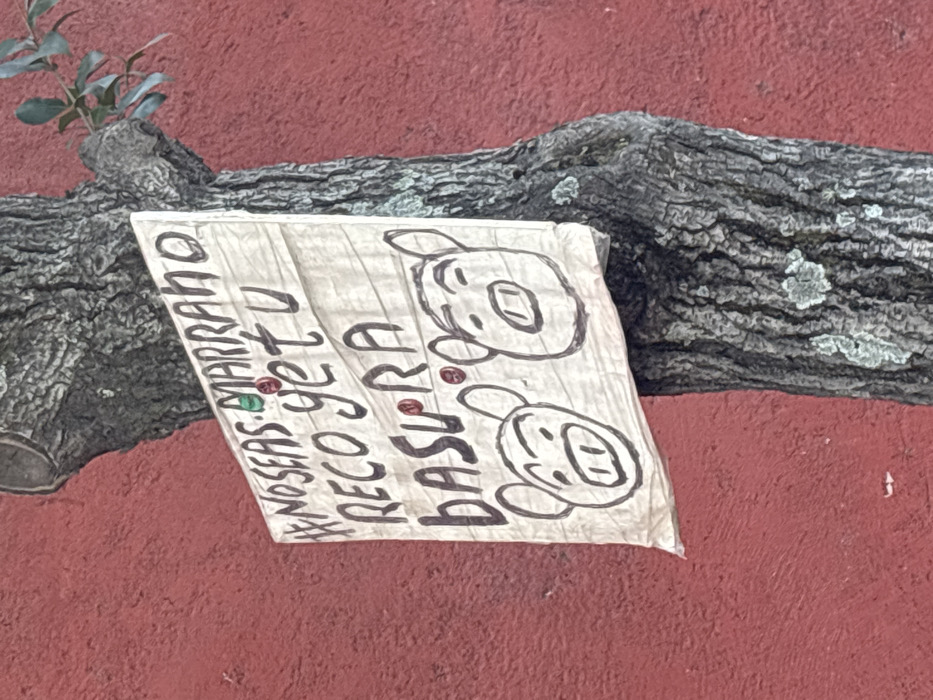 #NOSEAS MARRANO
RECOgE tU
bASURA